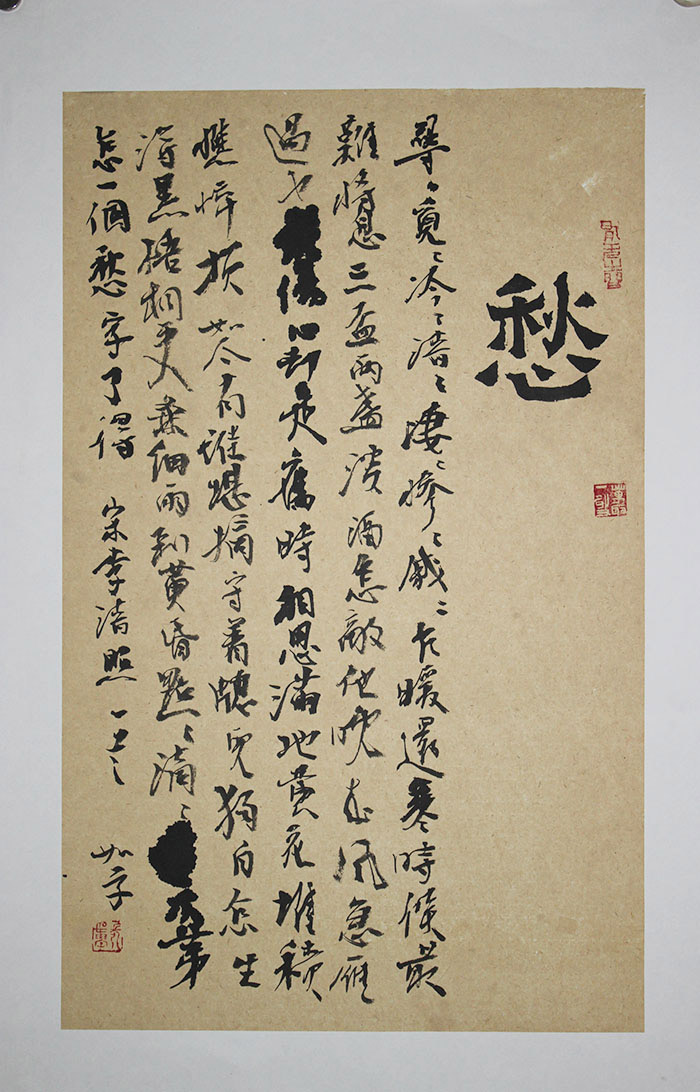 愁
尋〻覓〻冷〻清〻凄〻慘〻戚〻乍暖還寒時候最
難將息三盃兩盞淡酒怎敵他晚來風急雁
過也傷心却是舊時相思滿地黃花堆積
憔悴損如今有誰堪摘守着牕兒獨自怎生
得黑梧桐更兼細雨到黃昏點〻滴〻第
怎一個愁字了得 宋李清照